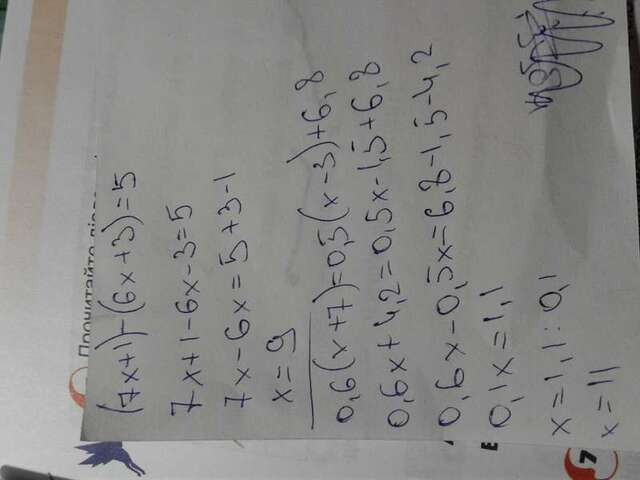 (7x+1)-(6x+3)=5
7x+1-6x-3=5
7x-6x=5+3-1
x=9
0,6(x+7)=0,5(x-3)+6,8
0,6x+4,2=0,5x-1,5+6,8
0,6x-0,5x=6,8-1,5-4,2
0,1x=1,1
x=1,1:0,1
x=11
Прочитайте
7